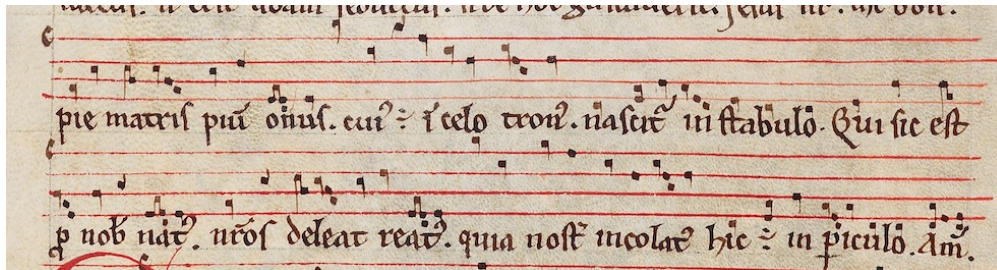 pie matris piu᷑ onus. cui᷒ ÷ i᷑ celo tron᷒. nascit᷑ in stabulo. Qui sic est
p nob᷒ nat᷒. nr̄os deleat reat᷒. quia nost᷑ incolat᷒ hic ÷ in piculo. Am̄.